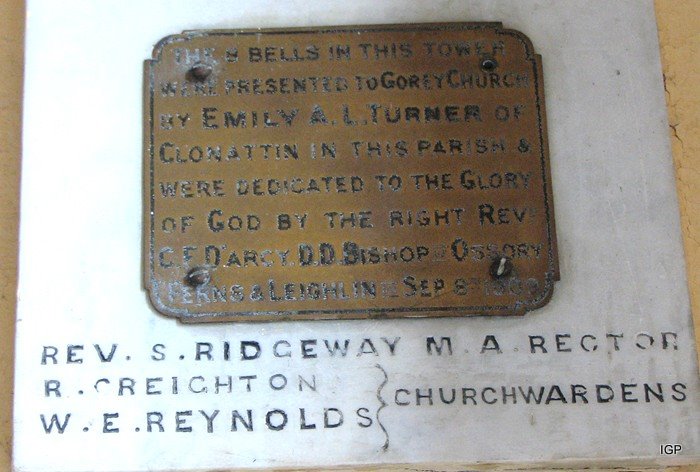 THE 8 BELLS IN THIS TOWER
WERE PRESENTED TO GOREY CHURCH
BY EMILY A. L. TURNER OF
CLONATTIN IN THIS PARISH &
WERE DEDICATED TO THE GLORY
OF GOD BY THE RIGHT REVD
C. F. D'ARCY. D.D. BISHOP OF OSSORY
FERNS & LEIGHLIN SEP 8TH
REV. S. RIDGEWAY M. A. RECTOR
R. CREIGHTON
W. E. REYNOLDS
CHURCHWARDENS
IGP